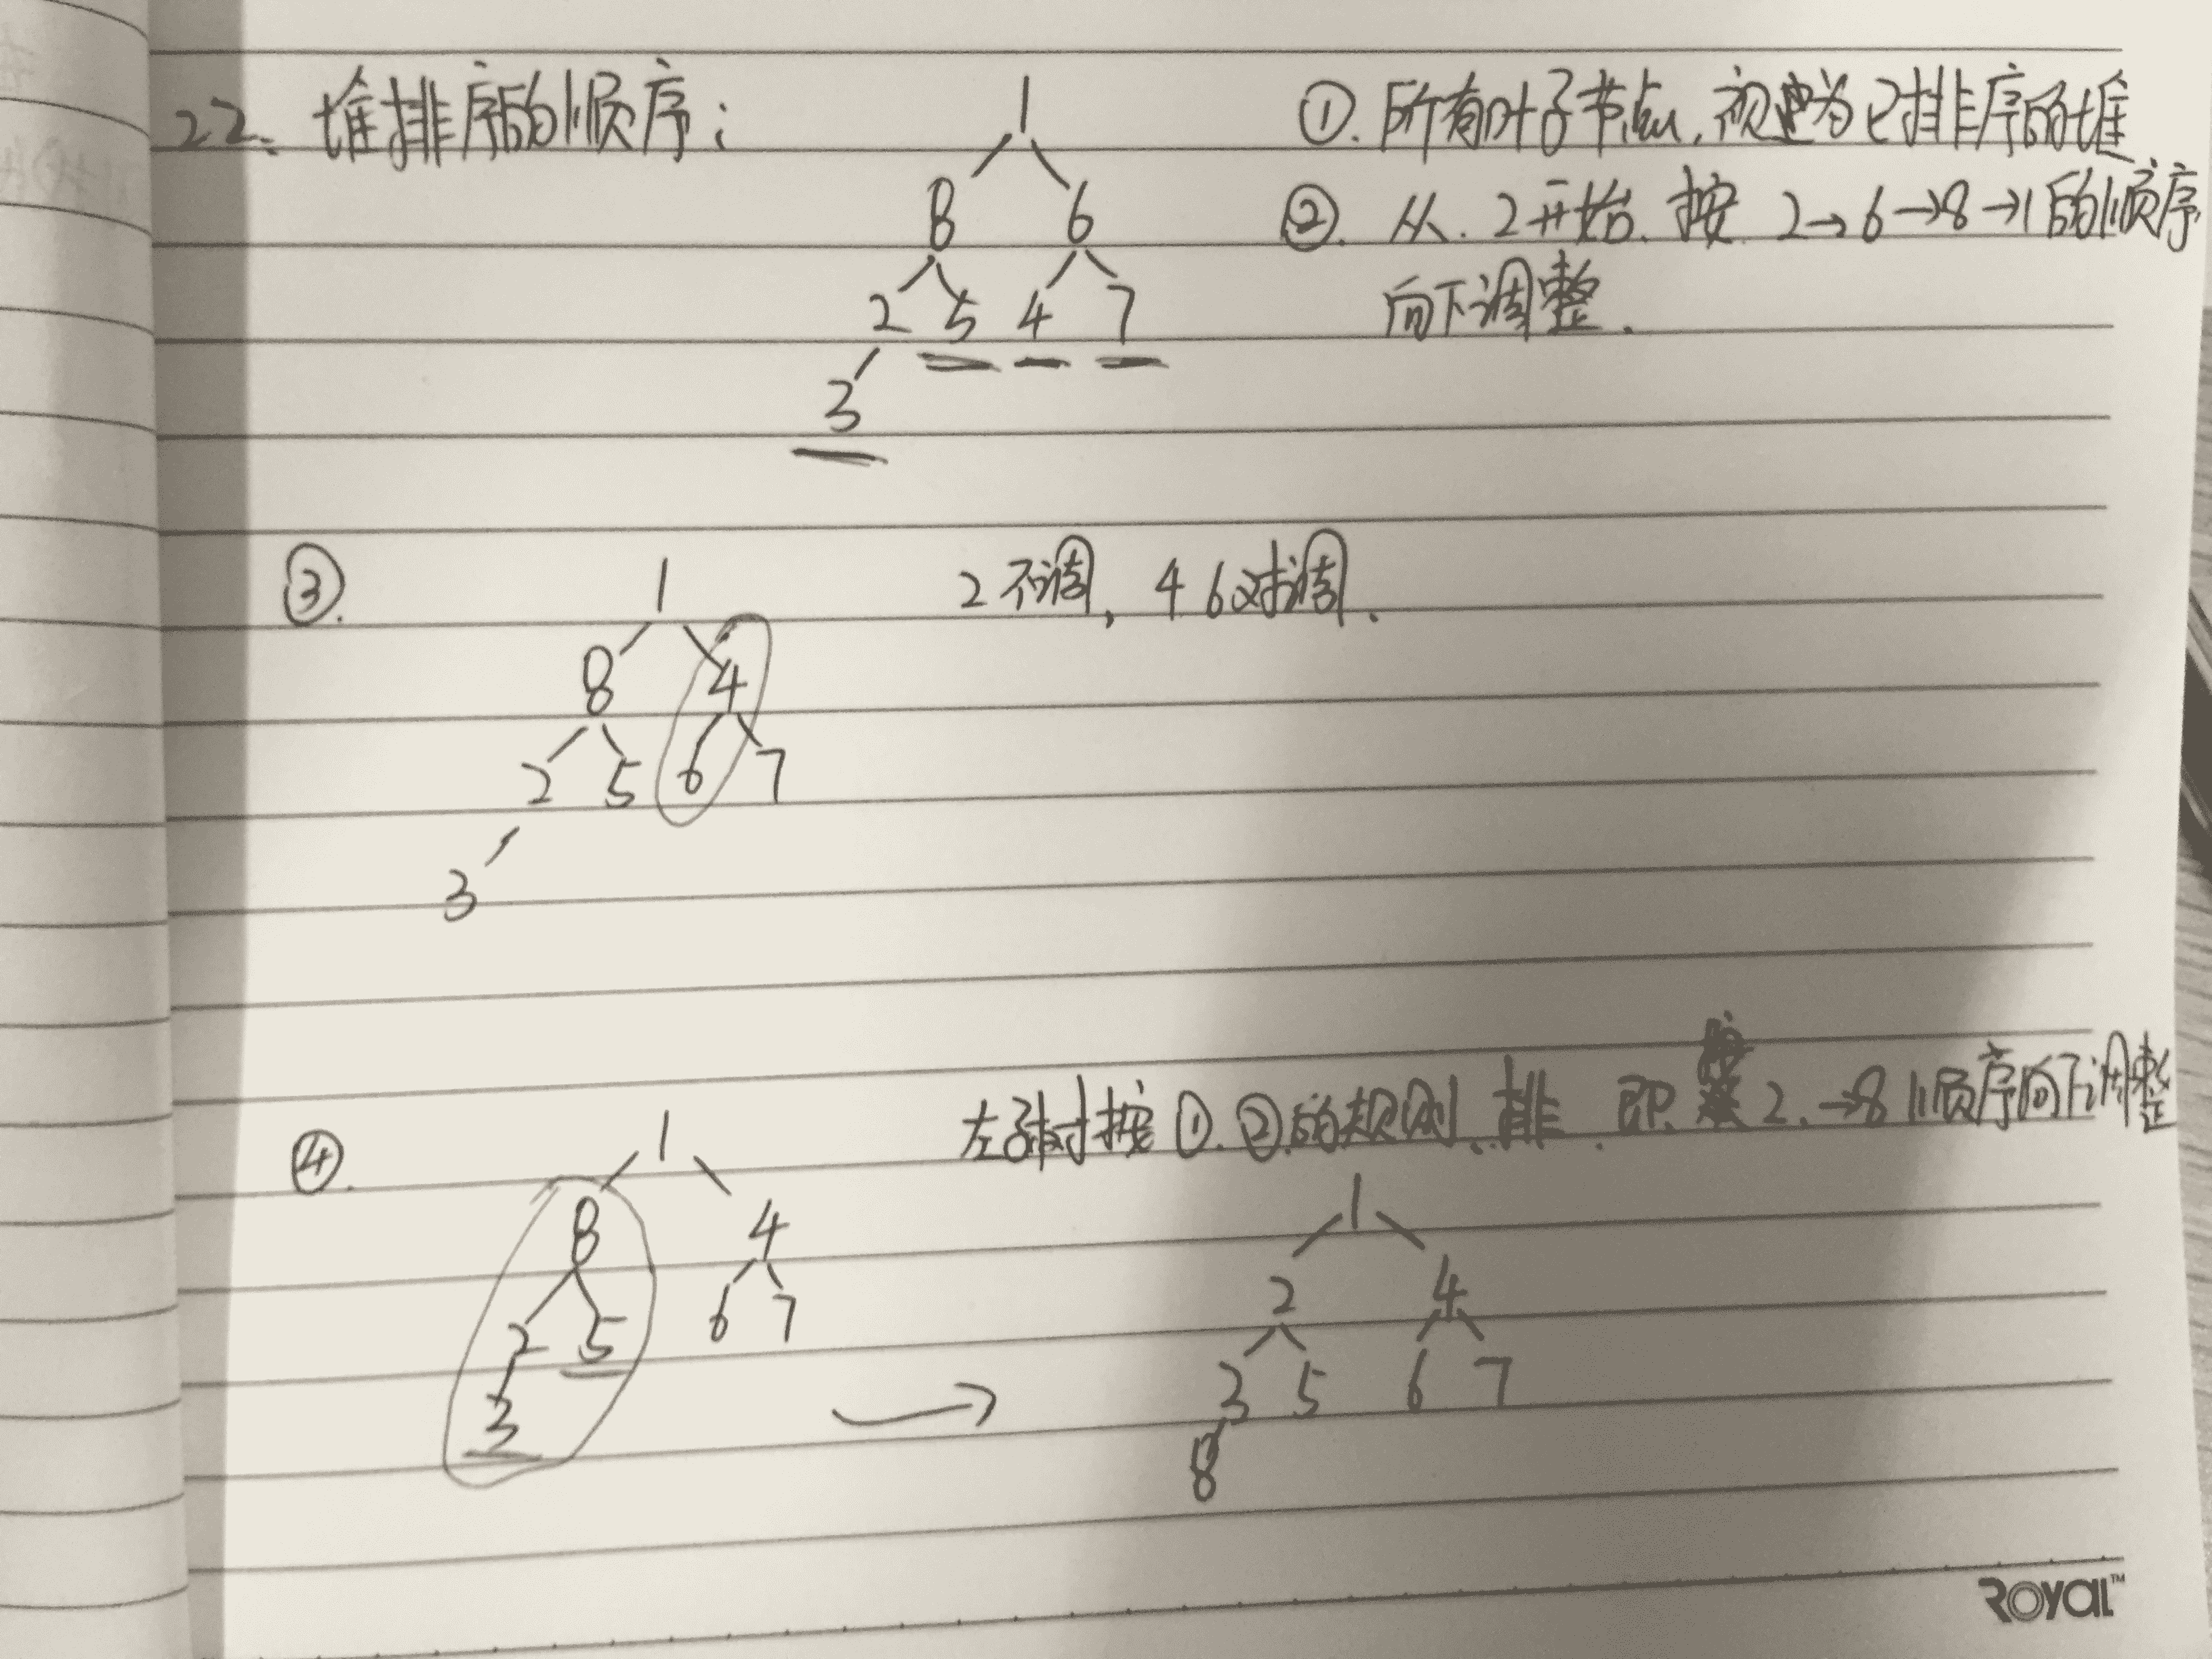 22、堆排序的顺序：
1
8 6
2 5 4 7
3
①. 所有叶子节点，视为已排序的堆
②. 从 2 开始. 按 2→6→8→1 的顺序
向下调整.
③. 2不调，4 6对调.
1
8 4
2 5 6 7
3
④. 左子树按①.②的规则、排. 即 2.→8 顺序向下调整
1
8 4
2 5 6 7
3
1
2 4
3 5 6 7
8
ROYAL™